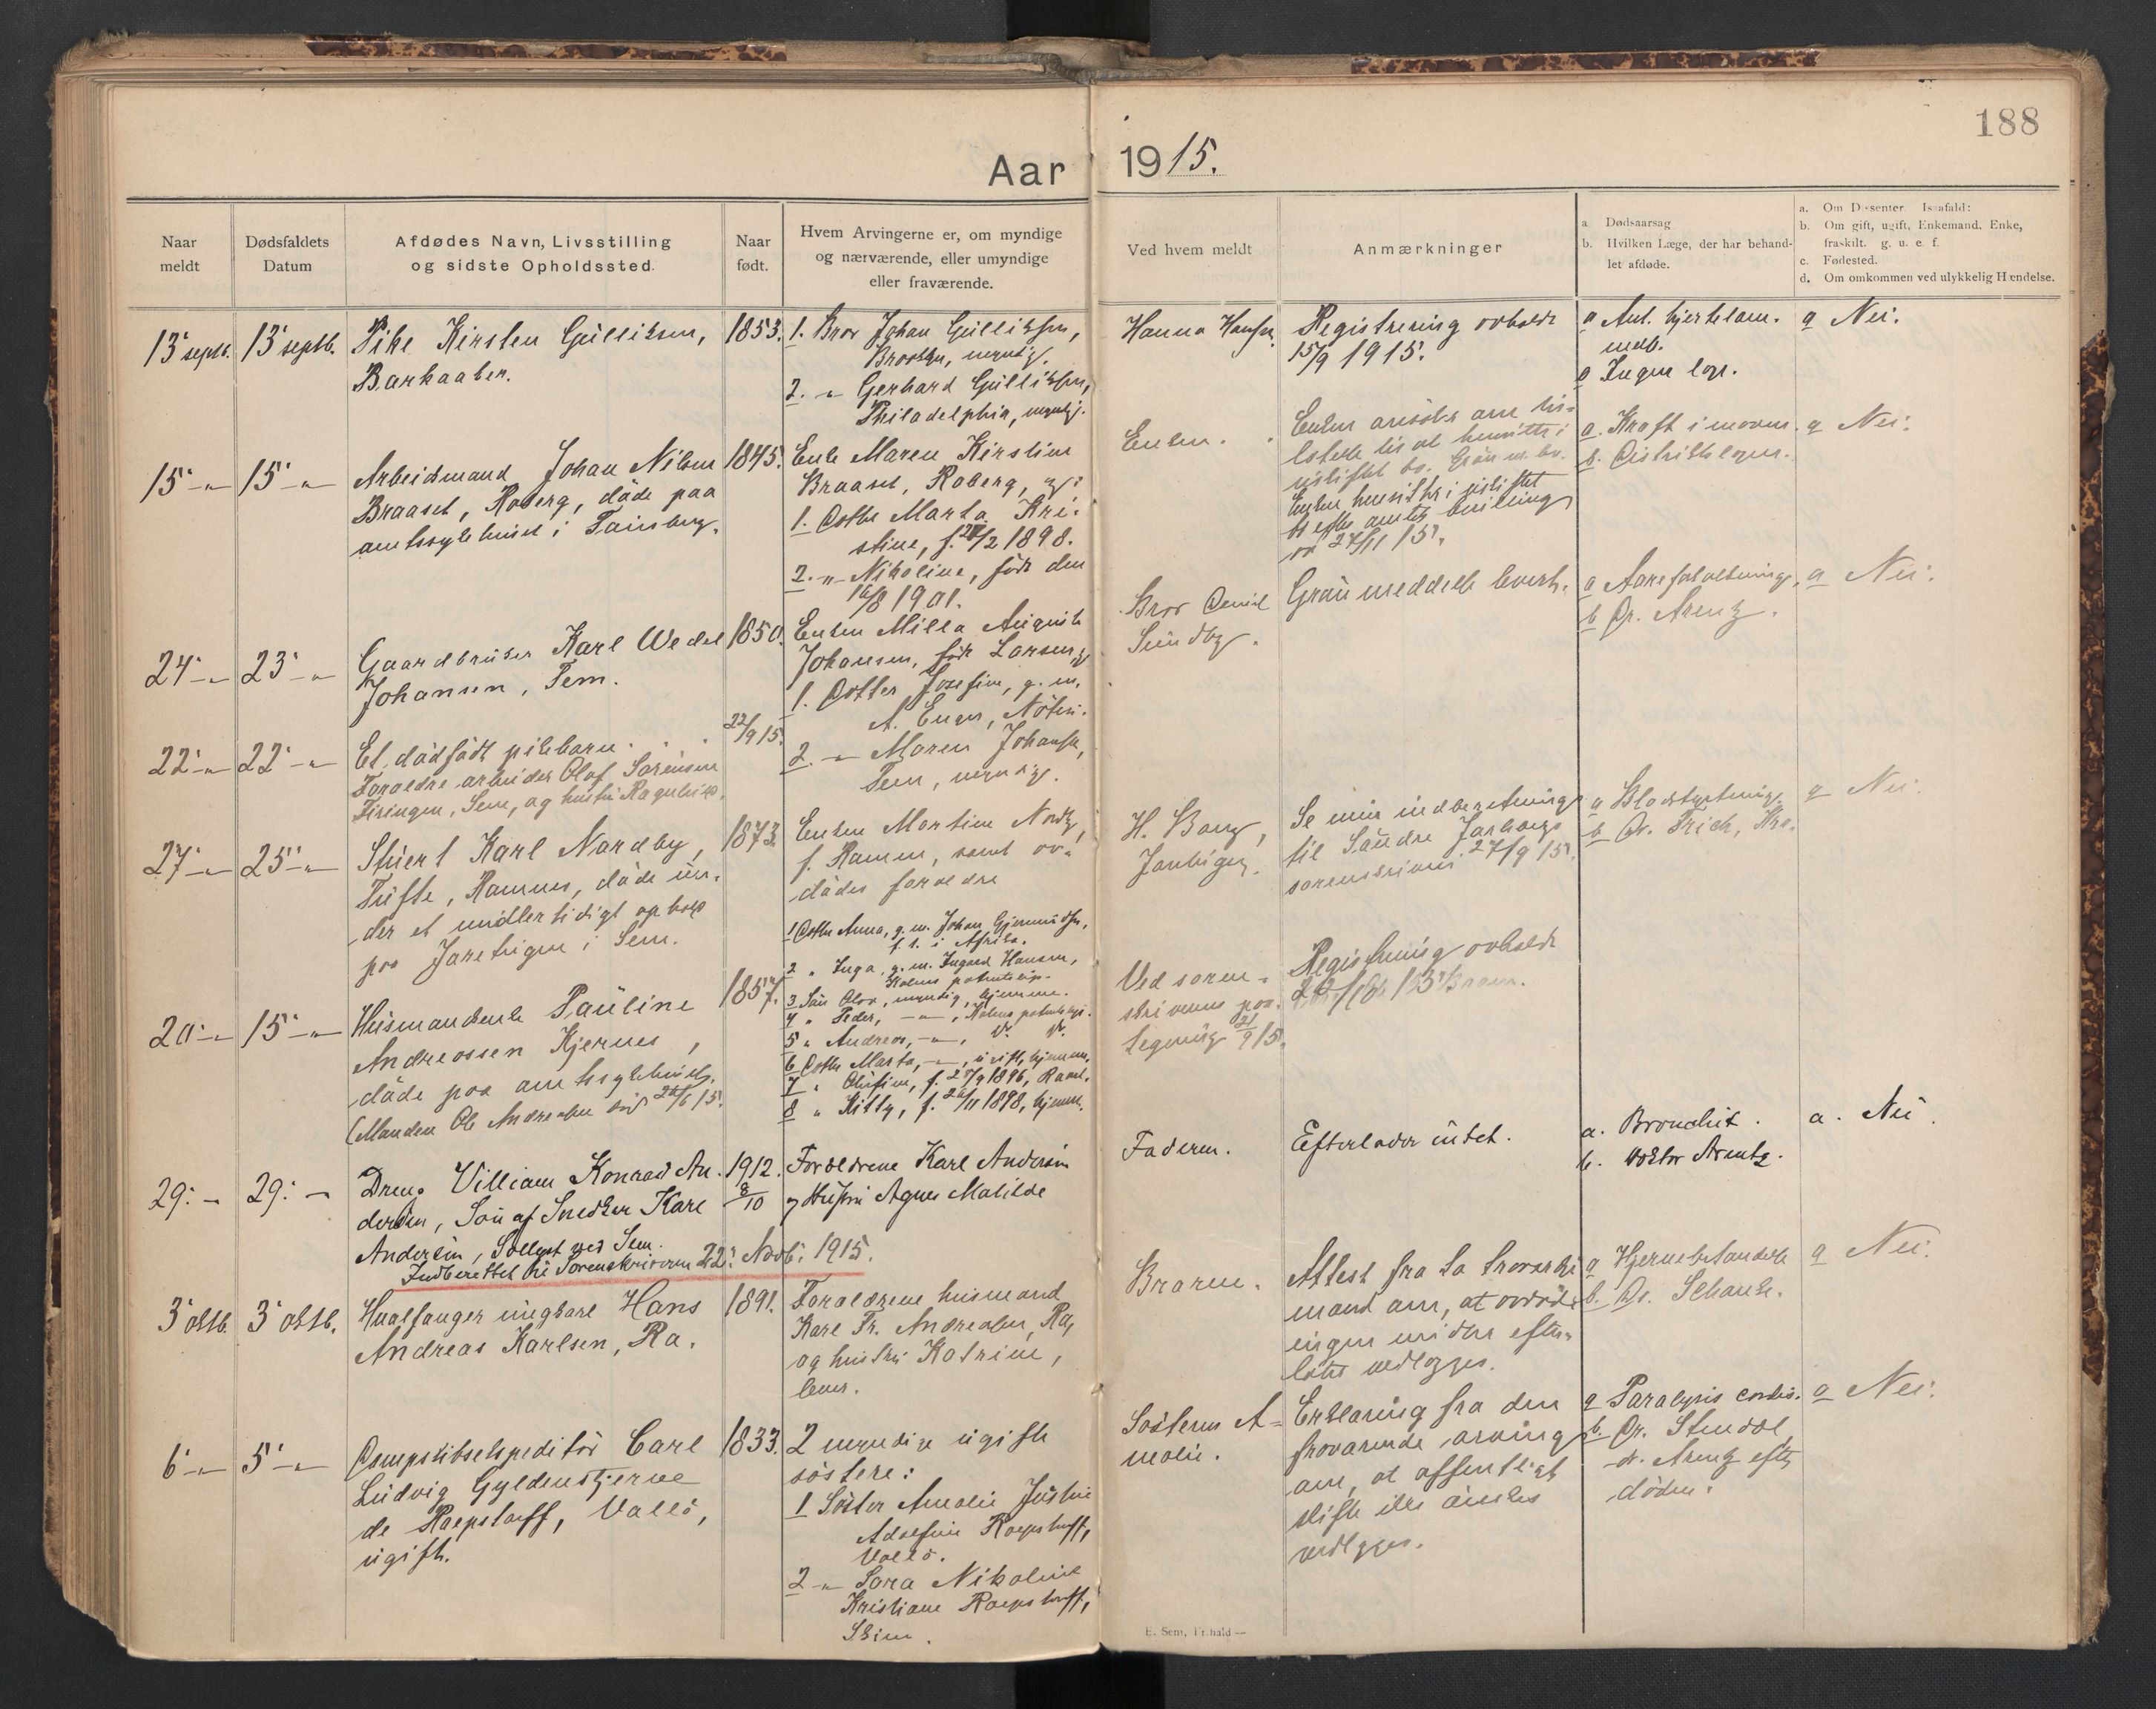 188
Aar 1915.
Naar meldt
Dødsfaldets Datum
Afdødes Navn, Livsstilling og sidste Opholdssted.
Naar født.
Hvem Arvingerne er, om myndige og nærværende, eller umyndige eller fraværende.
Ved hvem meldt
Anmærkninger
a. Dødsaarsag
b. Hvilken Læge, der har behandlet afdøde.
a. Om Dissenter. Isaafald:
b. Om gift, ugift, Enkemand, Enke, fraskilt. g. u. e. f.
c. Fødested.
d. Om omkommen ved ulykkelig Hændelse.
13 septb. 13 septb. Pike Kirsten Gulliksen,
Barkaaker.
1853.
1. Bror Johan Gulliksen,
myndig.
2. -"- Gerhard Gulliksen,
Philadelphia, myndig.
Hanna Hansen.
Registrering avholdt
15/9 1915.
a Ant. hjertelam-
b Ingen læge.
a Nei.
15 -"- 15 -"- Arbeidsmand Johan Nilsen
Braaset, Roberg, døde paa
amtssykehuset i Tønsberg.
1845.
Enke Maren Kirstine
Braaset, Roberg, og:
1. Datter Marta Kri-
stine, f. /2 1898.
2. -"- Nikoline, født den
16/8 1901.
Enken.
Enken ønsker
Enken hensitter i uskiftet
bo efter amtets bevilling
av 27/11 15.
a. Kræft i maven.
b. Distriktslægen.
a Nei.
24 -"- 23 -"- Gaardbruker Karl Wedel
Johansen, Fem.
1850.
Enken Milla Auguste
Johansen, født Larsen, og
1. Datter Josefine, g. m.
2. -"- Maren Johansen,
myndig.
Bror
Sundby.
Grav meddelt
a Aareforkalkning.
b Dr. Arentz.
a Nei.
22 -"- 22 -"- Et dødfødt pikebarn.
Forældre arbeider Olaf Sørensen
Sem, og hustru Ragnhild.
22/9 15.
27 -"- 25 -"- Karl Nordby,
Tufte, Ramnes, døde un-
der et midlertidigt ophold
paa Jareteigen i Sem.
1873.
Enken Martine Nordby,
f. Ramm, samt av-
dødes forældre
H. Bang,
Se min indberetning
til Søndre Jarlsberg
sorenskriveri 27/9 15.
a Blodstyrtning.
b Dr.
a Nei.
20 -"- 15 -"- Husmandsenke Pauline
Andreassen Kjernes,
døde paa amtssykehuset.
(Manden Ole Andreassen død
1857.
1 Datter Anna, g. m. Johan Gjermundsen,
f. t. i Afrika.
2 " Inga, g. m. Ingvald Hansen,
3 Søn Olav, myndig, hjemme.
4 " Peder, -"-,
5 " Andreas, -"-, do. do.
6 Datter Marta, -"-, ugift, hjemme.
7 " f. /9 1896,
8 " Kitty, f. 26/11 1898, hjemme.
Ved soren-
skriverens paa-
tegning 21/9 15.
Registrering avholdt
29: - 29: - Dreng William Konrad An-
dersen, Søn af Snedker Karl
Andersen, Solløst ved Sem.
Indberettet til Sorenskriveren 22: Novb: 1915.
1912.
8/10
Forældrene Karl Andersen
og Hustru Agnes Matilde
Faderen.
Efterlader intet.
a. Bronchit.
b. Doktor Arentz.
a. Nei.
3 oktb. 3 oktb. Hvalfanger ungkarl Hans
Andreas Karlsen, Ra.
1891.
Forældrene husmand
Karl Fr. Andreassen, Ra,
og hustru Katrine,
lever.
Broren.
Attest fra to troværdige
mænd om, at avdøde
ingen midler efter-
lot vedlægges.
a Hjernebetændelse
b. Dr. Schanke.
a Nei.
6 -"- 5 -"- Dampskibsekspeditør Carl
Ludvig Gyldenstjerne
de Roepstorff, Valløe,
ugift.
1833.
2 myndige ugifte
søstere:
1 Søster Amalie Justine
Adolfine Roepstorff,
Valløe.
2 -"- Sara Nikoline
Kristiane Roepstorff,
Skien.
Søsteren A-
malie.
Erklæring fra den
fraværende arving
om, at offentligt
skifte ikke ønskes
vedlægges.
a Paralysis cordis.
b. Dr. Stendal,
dr. Arentz efter
døden.
a Nei.
E. Sem, Fr.hald —